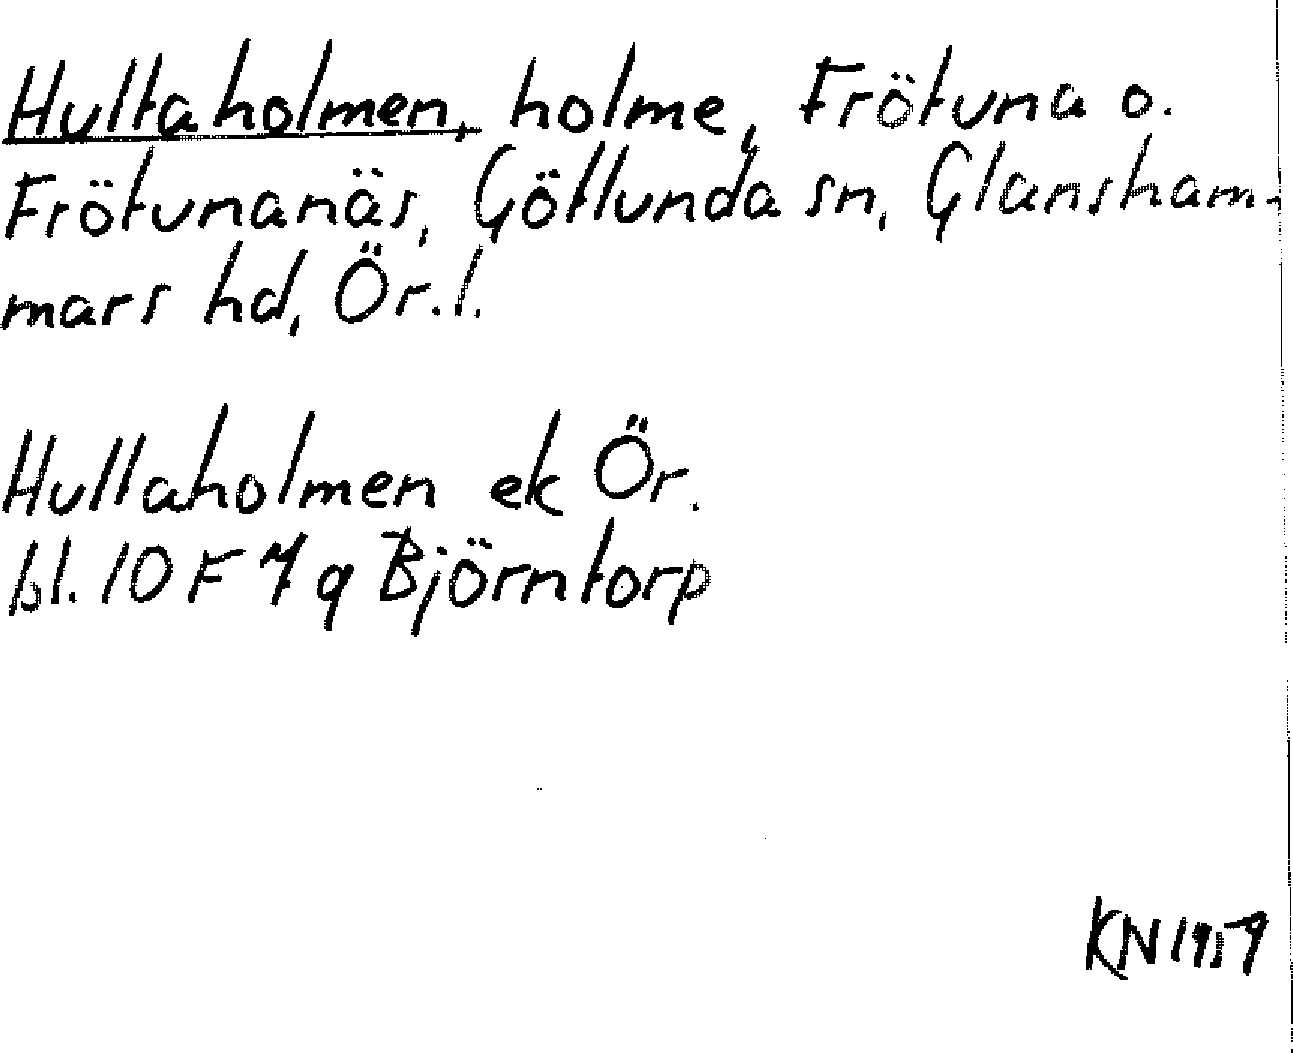 Hultaholmen, holme, Frötuna o.
Frötunanäs, Götlunda sn, Glansham-
mars hd, Ör.l.
Hullaholmen ek Ör.
bl. 10 F 7 q Björntorp
KN 1959